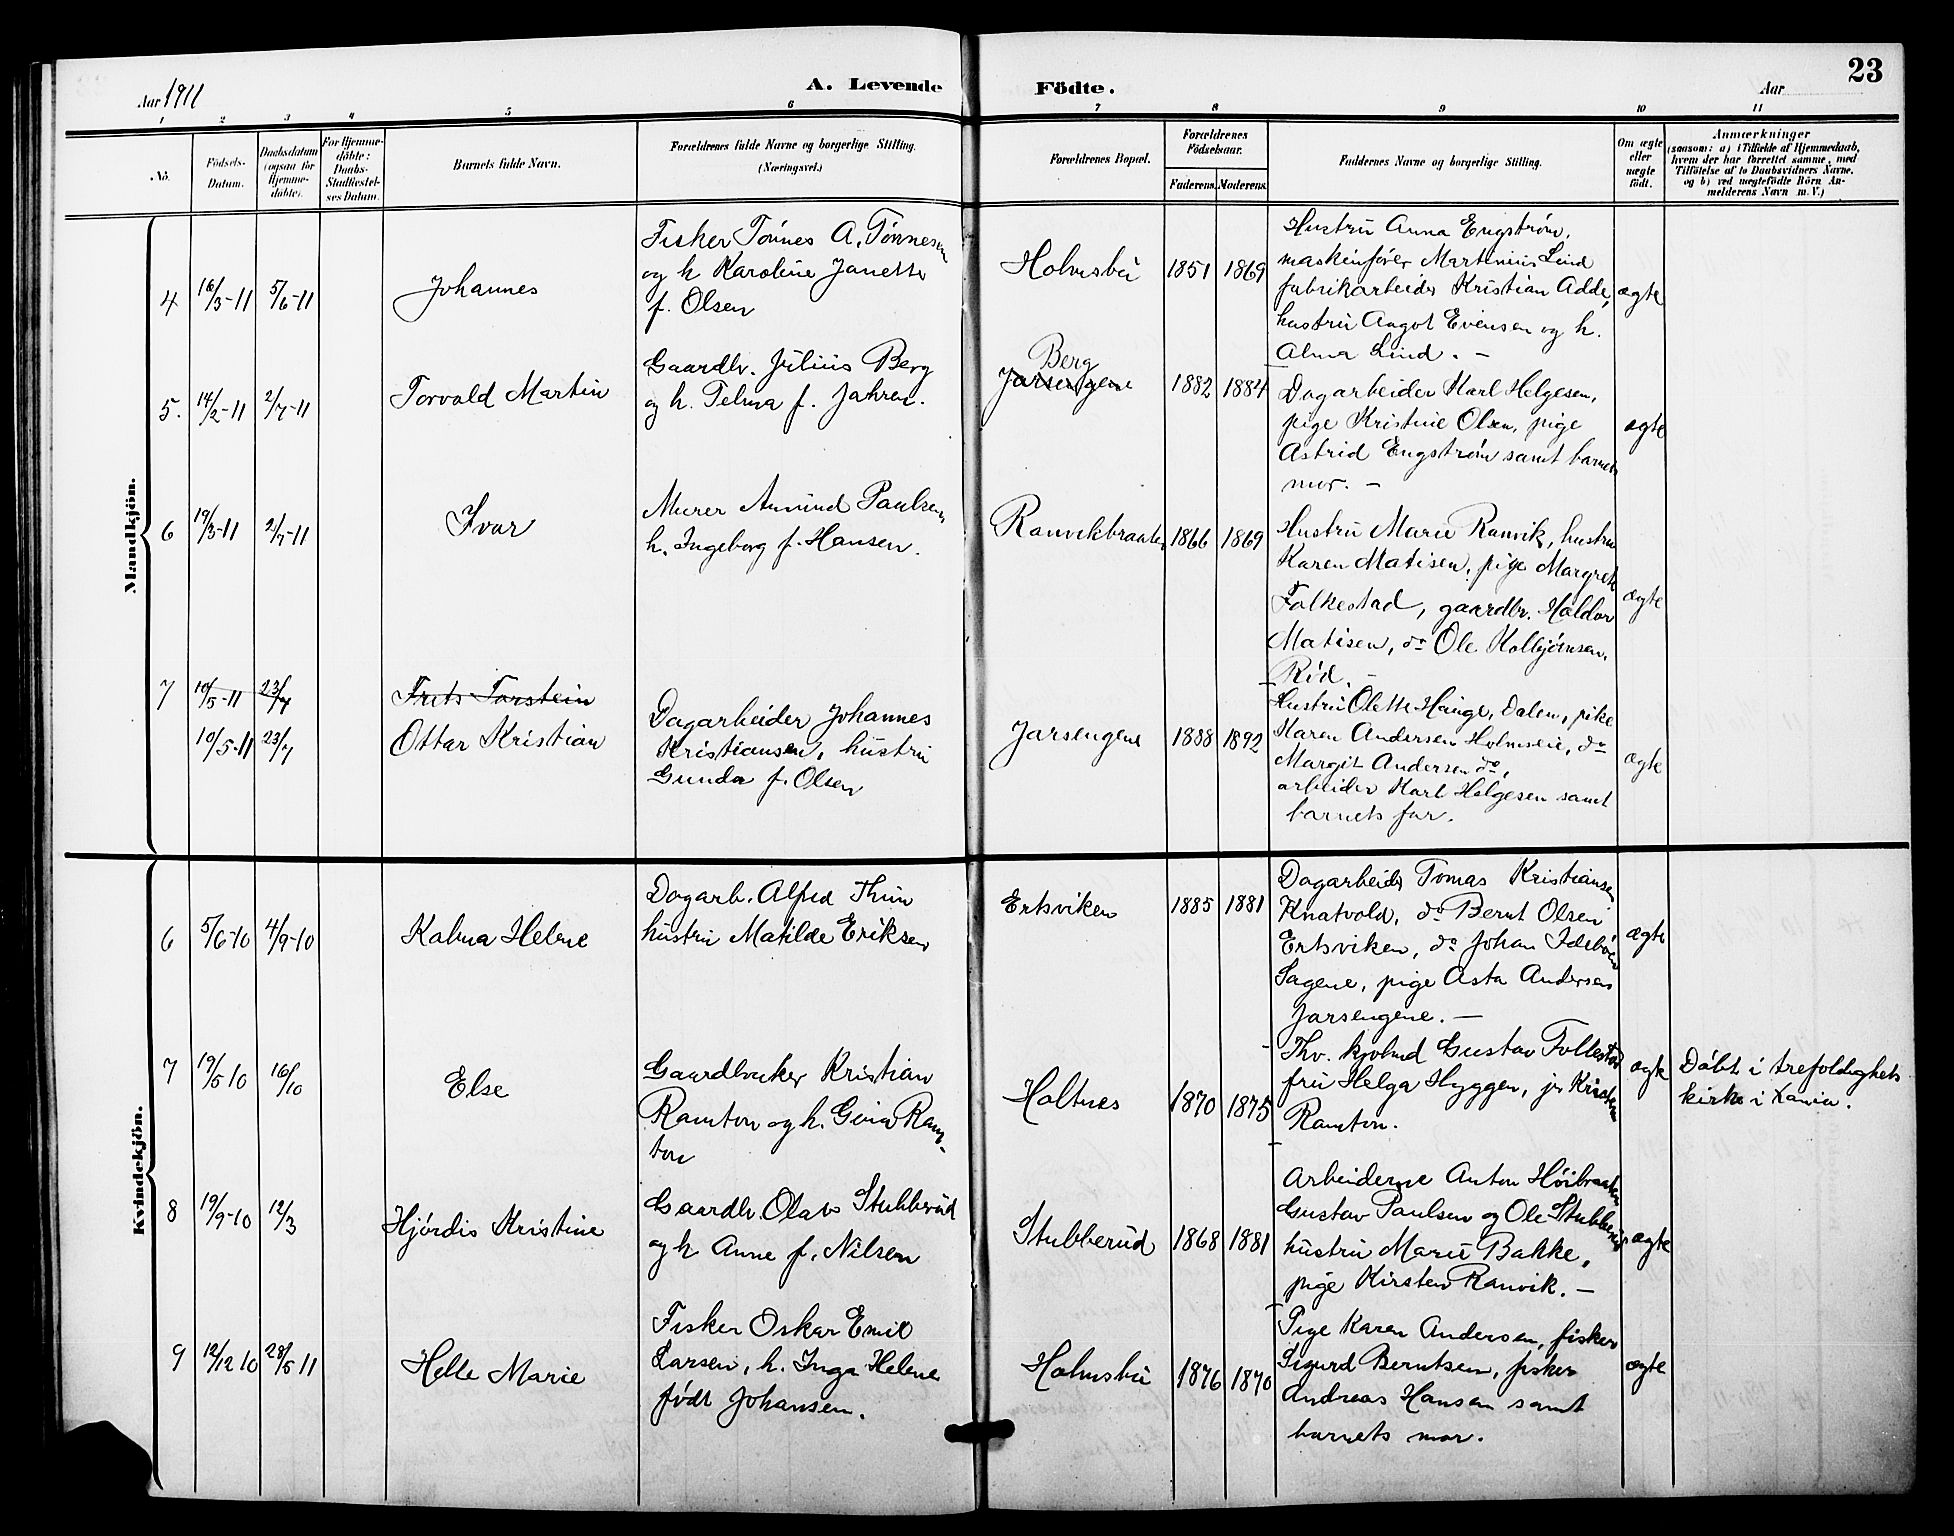 Aar 1911
A. Levende Födte.
Aar
23
1 2 3 4 5 6 7 8 9 10 11
No.
Födsels-Datum.
Daabsdatum (ogsaa for Hjemme-döbte).
For Hjemme-döbte: Daabs-Stadfæstel-ses Datum.
Barnets fulde Navn.
Forældrenes fulde Navne og borgerlige Stilling.
(Næringsvei.)
Forældrenes Bopæl.
Forældrenes Födselsaar.
Faderens. Moderens.
Faddernes Navne og borgerlige Stilling.
Om ægte eller uægte födt.
Anmærkninger
(saasom: a) i Tilfælde af Hjemmedaab,
hvem der har forrettet samme, med
Tilföielse af to Daabsvidners Navne,
og b) ved uegtefödte Börn An-
melderens Navn m. V.)
Mandkjön.
4 16/3-11 5/6-11 Johannes
Fisker Tönnes A. Tönnesen
og h Karoline Janette
f. Olsen
Holmsbu 1851 1869
Hustru Anna Engström,
maskinfører Martinius Lind
fabrikarbeider Kristian Adde,
hustru Aagot Evensen og h.
Alma Lind. –
ægte
5. 14/2-11 2/7-11 Torvald Martin
Gaardbr. Julius Berg
og h. Telma f. Jahren.
Berg
Jarsengene 1882 1884
Dagarbeider Karl Helgesen,
pige Kristine Olsen, pige
Astrid Engström samt barnets
mor. –
ægte
6 19/3-11 2/7-11 Ivar
Murer Amund Paulsen
h. Ingeborg f. Hansen.
Ranvikbraaten 1866 1869
Hustru Marie Ranvik, hustru
Karen Matisen, pige Margrete
Falkestad, gaardbr. Haldor
Matisen, do Ole Kolbjörnsen,
Röd. –
ægte
7 10/5-11 23/7 Frits Torstein
10/5-11 23/7 Ottar Kristian
Dagarbeider Johannes
Kristiansen, hustru
Gunda f. Olsen
Jarsengene 1888 1892
Hustru Olette Hauge, Dalen, pike
Karen Andersen Holmseie, do
Margit Andersen do,
arbeider Karl Helgesen samt
barnets far.
ægte
Kvindekjön.
6 5/6-10 4/9-10 Kalma Helene
Dagarb. Alfred Thun
hustru Matilde Eriksen
Ertsviken 1885 1881
Dagarbeider Tomas Kristiansen
Knatvold, do Bernt Olsen
Ertsviken, do Johan Idebøen
Sagene, pige Asta Andersen
Jarsengene. –
ægte
7 19/5 10 16/10 Else
Gaardbruker Kristian
Ramton og h. Gina Ram-
ton
Holtnes 1870 1875
Thv. kjobmd Gustav Follestad
fru Helga Hyggen, jr Kristen
Ramton.
ægte
Döbt i trefoldighets
kirke i Xania.
8 19/9-10 12/3 Hjördis Kristine
Gaardbr. Olav Stubberud
og h Anne f. Nilsen
Stubberud 1868 1881
Arbeiderne Anton Höibraaten
Gustav Paulsen og Ole Stubberud
hustru Marie Bakke,
pige Kirsten Ranvik. –
ægte
9 12/12 10 28/5 11 Helle Marie
Fisker Oskar Emil
Larsen, h. Inga Helene
født Johansen.
Holmsbu 1876 1870
Pige Karen Andersen, fisker
Sigurd Berntsen, fisker
Andreas Hansen samt
barnets mor.
ægte